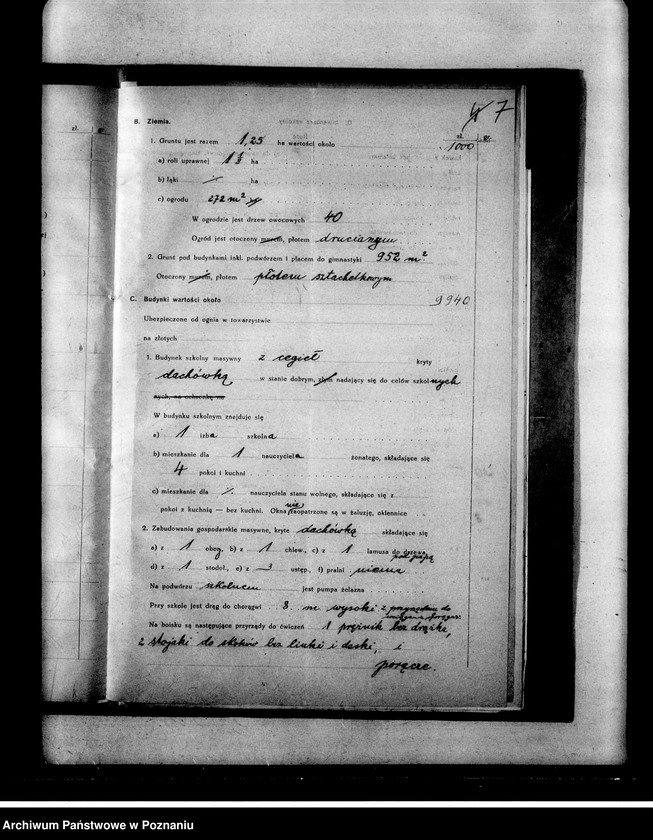 7
zł. gr.
zł. gr.
B. Ziemia.
1. Gruntu jest razem 1,25 ha wartości około 1000
a) roli uprawnej 1 1/8 ha
b) łąki ·/· ha
c) ogrodu 272 m²
W ogrodzie jest drzew owocowych 40
Ogród jest otoczony murem, płotem drucianym
2. Grunt pod budynkami inkl. podwórzem i placem do gimnastyki 952 m²
Otoczony murem, płotem płotem sztachetkowym
C. Budynki wartości około 9940
Ubezpieczone od ognia w towarzystwie
na złotych
1. Budynek szkolny masywny z cegieł kryty
dachówką w stanie dobrym, złym nadający się do celów szkolnych
nych, na ochronkę
W budynku szkolnym znajduje się
a) 1 izba szkolna
b) mieszkanie dla 1 nauczyciela żonatego, składające się
4 pokoi i kuchni
c) mieszkanie dla ·/. nauczyciela stanu wolnego, składające się z
pokoi z kuchnią — bez kuchni. Okna nie zaopatrzone są w żaluzje, okiennice
2. Zabudowania gospodarskie masywne, kryte dachówką składające się
a) z 1 obory, b) z 1 chlew., c) z 1 lamusa do drzewa, pod papą
d) z 1 stodoł., e) z 3 ustęp., f) pralni niema
Na podwórzu szkolnem jest pumpa żelazna
Przy szkole jest drąg do chorągwi 8 m wysoki z przyrządem do
Na boisku są następujące przyrządy do ćwiczeń 1 prężnik bez drążka,
2 stojaki do skoków bez linki i deski, i
poręcze.
Archiwum Państwowe w Poznaniu